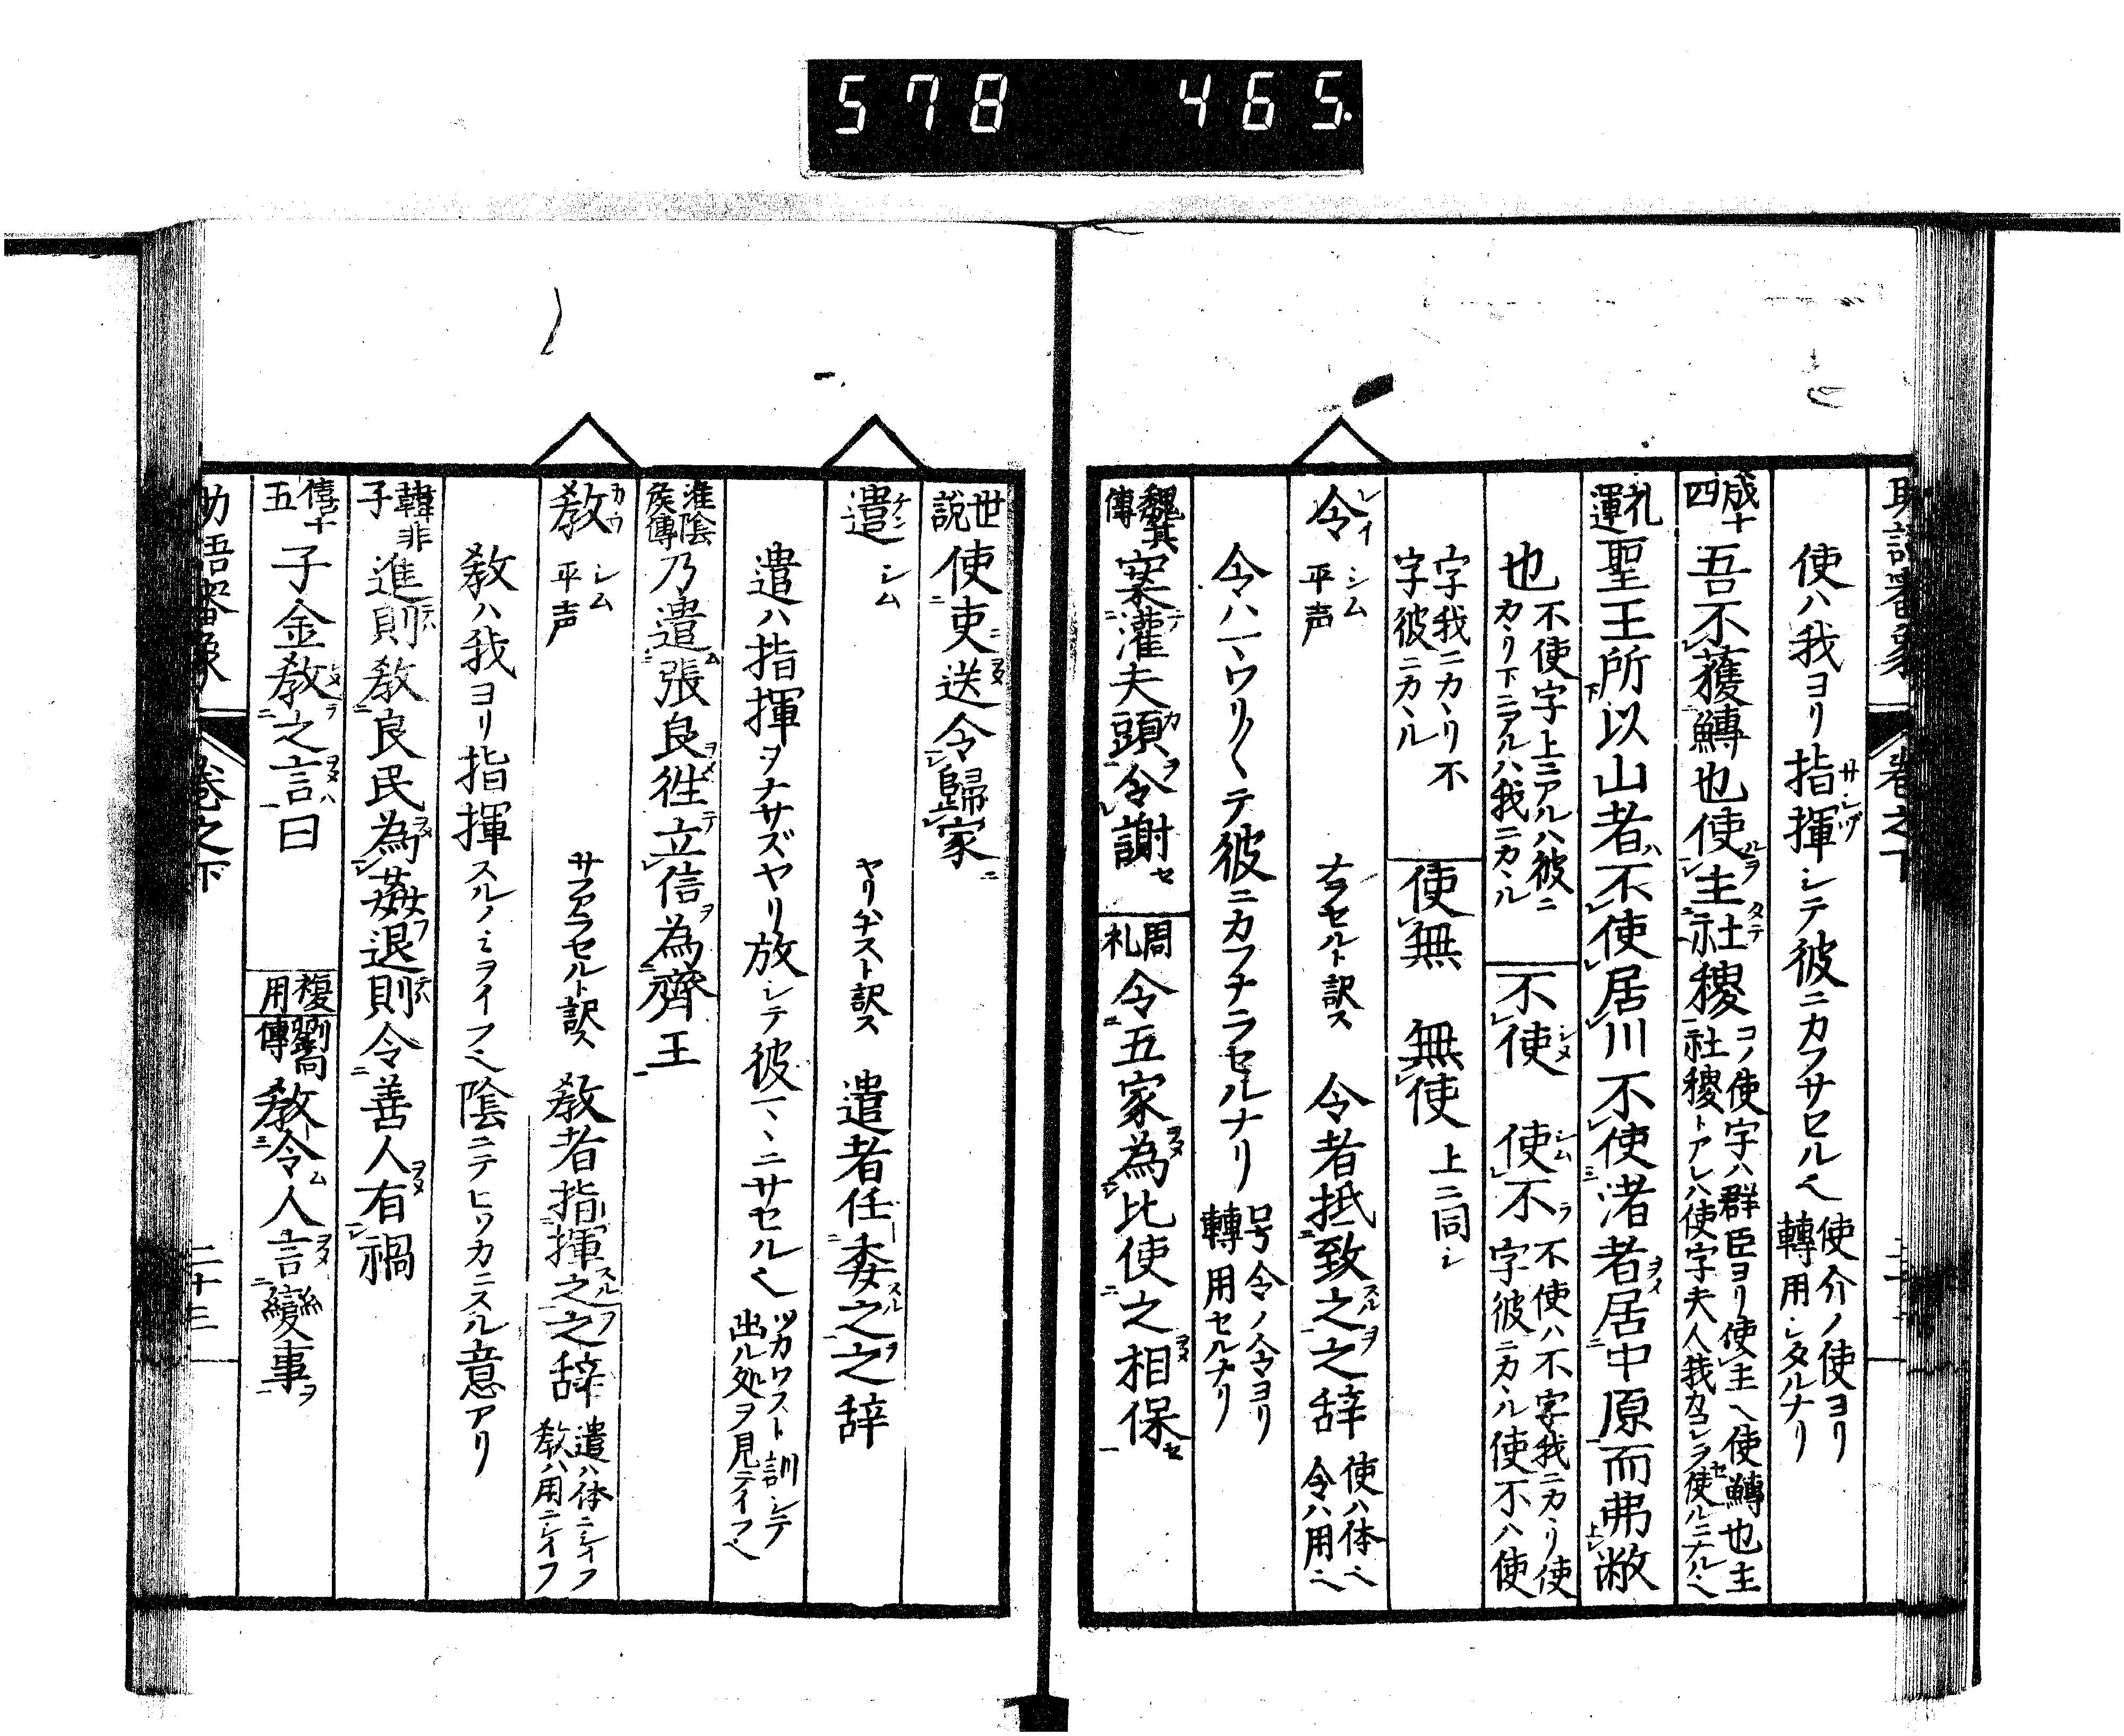 578 465.
助語審象 巻之下
使ハ我ヨリ指揮シテ彼ニカフサセルヘ 使介ノ使ヨリ轉用シタルナリ
成十四 吾不獲鱄也使主社稷 コノ使字ハ群臣ヨリ使主ヘ使鱄也主社稷トアレハ使字夫人我カコレヲ使ルニナルヘ
礼運 聖王所以山者不使居川不使渚者居中原而弗敝
也 不使字上ニアルハ彼ニカヽリ下ニアルハ我ニカヽル 不使 使不 不使ハ不字我ニカヽリ使字彼ニカヽル使不ハ使
字我ニカヽリ不字彼ニカヽル 使無 無使 上ニ同シ
令 レイ シム 平声 ナラセルト訳ス 令者抵致之之辞 使ハ体ヘ令ハ用ヘ
令ハ一ウリ〱テ彼ニカフナラセルナリ 号令ノ令ヨリ轉用セルナリ
魏其傳 案灌夫頭令謝 周礼 令五家為比使之相保
世説 使吏送令歸家
遣 ケン シム ヤリヰスト訳ス 遣者任委之之辞
遣ハ指揮ヲナサズヤリ放シテ彼一ヽニサセルヘ ツカワスト訓シテ出ル処ヲ見テイフヘ
淮陰侯傳 乃遣張良徃立信為齊王
教 カウ シム 平声 サアラセルト訳ス 教者指揮之之辞 遣ハ体ニシイフ教ハ用ニシイフ
教ハ我ヨリ指揮スルノミヲイフヘ陰ニテヒツカニスル意アリ
韓非子 進則教良民為姦退則令善人有禍
僖十五 子金教之言曰 複用 劉向傳 教令人言變事
助語審象 巻之下 二十三